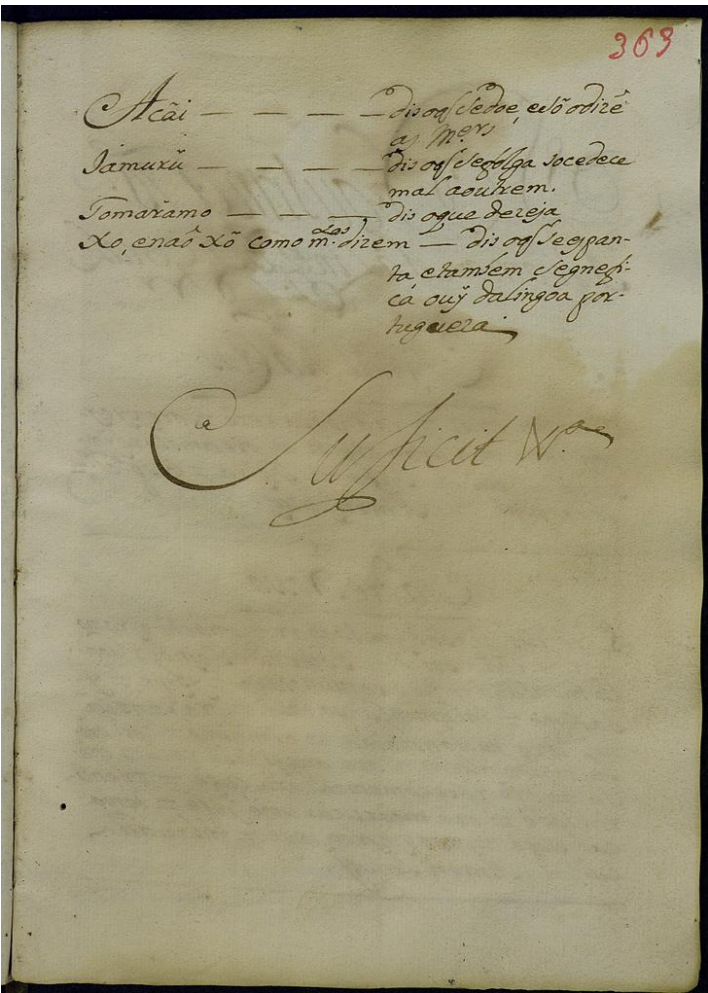 363
Acãi — — — — dis oq̃ se doe, e só o dizẽ
as Mers
Iámurũ — — — — dis oq̃ se folga socedece
mal aoutrem.
Tomarámo — — — dis oque dezeja
Xo, enaõ xõ como m.tos dizem — dis oq̃ se espan-
ta etambem segnefi-
cá ouÿ dalingoa por-
tugueza
Sufficit